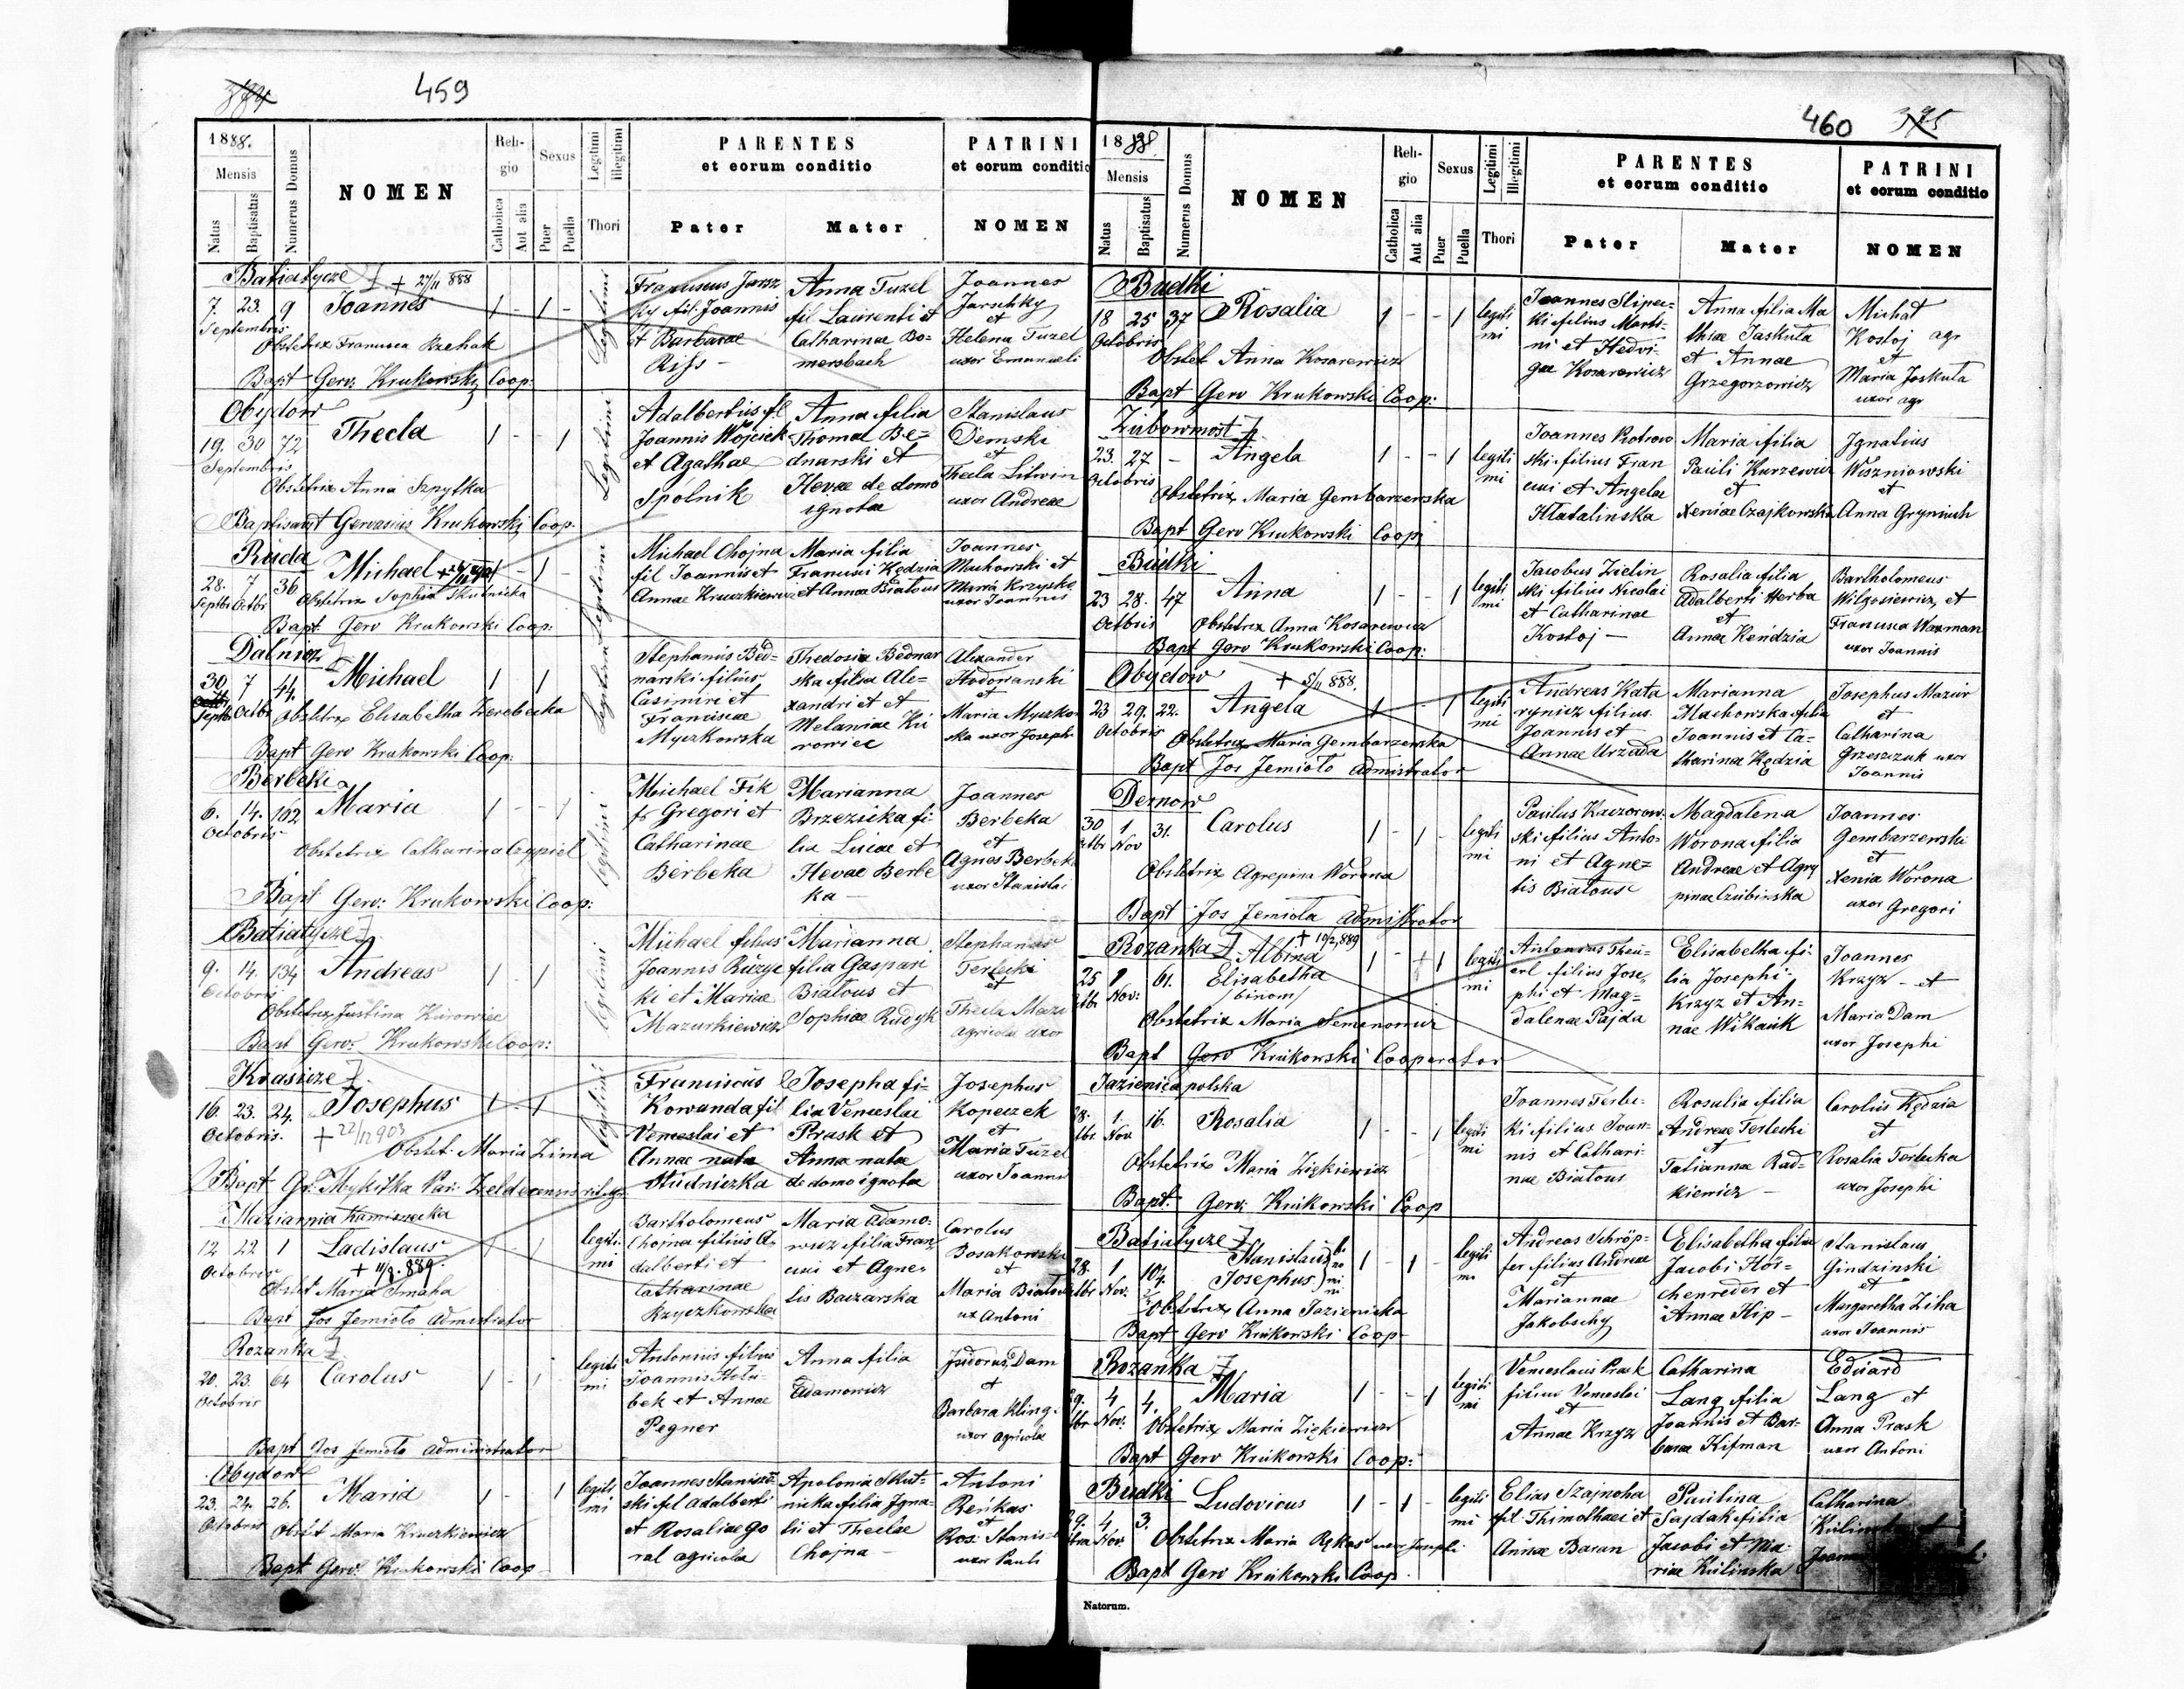 459
1888.
Mensis
Natus
Baptisatus
Numerus Domus
NOMEN
Reli-
gio
Catholica
Aut alia
Sexus
Puer
Puella
Legitimi
Illegitimi
Thori
PARENTES
et eorum conditio
Pater
Mater
PATRINI
et eorum conditio
NOMEN
Batiatycze + 27/11 888
7. 23. 9 Joannes 1 - 1 - Legitimi
Septembris
Obstetrix Francisca Rzehak
Bapt Gerv: Krukowski Coop:
Franciscus Jarsz
ky fil: Joannis
et Barbarae
Rifs -
Anna Tuzel
fil Laurenti et
Catharinae Bo=
mersbach
Joannes
Jarschky
et
Helena Tuzel
uxor Emanueli
Obydow
19. 30 72 Thecla 1 - - 1 Legitimi
Septembris
Obstetrix Anna Szpytka
Baptisavit Gervasius Krukowski Coop.
Adalbertus fil
Joannis Wojciek
et Agathae
Spólnik
Anna filia
Thomae Be=
dnarski et
Hevae de domo
ignotae
Stanislaus
Demski
et
Thecla Litwin
uxor Andreae
Ruda
28. 7 36 Michael 1 - 1 - Legitimi
Septbr Octbr
Obstetrix Sophia Skutnicka
Bapt. Gerv Krukowski Coop:
Michael Chojna
fil Joannis et
Annae Kruczkiewicz
Maria filia
Francisci Kędzia
et Annae Białous
Joannes
Machowski et
Maria Krzyski
uxor Joannis
Dalnicz
30 7 44. Michael 1 1 Legitimi
Septbr Octbr
Obstetrix Elisabetha Zerebecka
Bapt Gerv Krukowski Coop:
Stephanus Bed=
narski filius
Casimiri et
Franciscae
Myczkowska
Thedosia Bednar
ska filia Ale=
xandri et
Melaniae Ki
rowiec
Alexander
Hodowanski
et
Maria Myczko
ska uxor Joseph
Berbeki
6. 14. 102 Maria 1 - - 1 legitimi
Octobris
Obstetrix Catharina Czypiel
Bapt Gerv: Krukowski Coop:
Michael Fik
fs Gregori et
Catharinae
Berbeka
Marianna
Brzezicka fi
lia Luciae et
Hevae Berbe
ka -
Joannes
Berbeka
et
Agnes Berbek
uxor Stanislai
Batiatycze
9. 14. 134 Andreas 1 - 1 legitimi
Octobris
Obstetrix Justina Kirowiec
Bapt Gerv: Krukowski Coop:
Michael filius
Joannis Ruzyc
ki et Mariae
Mazurkiewicz
Marianna
filia Gaspari
Białous et
Sophiae Rudyk
Stephanus
Terlecki
et
Thecla Mazu
agricola uxor
Krasicze
16. 23. 24. Josephus 1 - 1 legitimi
Octobris. + 22/12 903
Obstet. Maria Zima
Bapt Gr. Mykitka Par: Zeldecensis rit. gr.
Franciscus
Kowanda fil
Venceslai et
Annae nata
Studniczka
Josepha fi=
lia Venceslai
Prask et
Anna nata
de domo ignota
Josephus
Kopeczek
et
Maria Tuzel
uxor Joannis
Maziarnia Kamionecka
12 22 1 Ladislaus 1 - 1 legiti-
mi
Octobris + 11/8. 889.
Obstet Maria Smaha
Bapt Jos Jemioło Administrator
Bartholomeus
Chojna filius A.
dalberti et
Catharinae
Krzyczkowska
Maria Adamo=
wicz filia Fran
cisci et Agne=
tis Baczarska
Carolus
Bosakowski
et
Maria Białous
ux Antoni
Rozanka
20. 23. 64 Carolus 1 - 1 legiti
mi
Octobris
Bapt Jos Jemioło Administrator
Antonius filius
Joannis Hołu-
bek et Annae
Pegner
Anna filia
Adamowicz
Isidorus Dam
et
Barbara Kling-
uxor Agricola
Obydow
23. 24. 26. Maria 1 - 1 legiti
mi
Octobris
Obstet Maria Kruczkiewicz
Bapt Gerv. Krukowski Coop
Joannes Staniszew
ski fil Adalberti
et Rosaliae Go
ral agricola
Apolonia Skut=
nicka filia Igna-
tii et Theclae
Chojna -
Antoni
Reńkas
et
Ros: Stanisz
uxor Pauli
460
1888.
Mensis
Natus
Baptisatus
Numerus Domus
NOMEN
Reli-
gio
Catholica
Aut alia
Sexus
Puer
Puella
Legitimi
Illegitimi
Thori
PARENTES
et eorum conditio
Pater
Mater
PATRINI
et eorum conditio
NOMEN
Budki
18 25 37 Rosalia 1 - - 1 legiti
mi
Octobris
Obstet Anna Kosarewicz
Bapt Gerv Krukowski Coop:
Joannes Slipec=
ki filius Marti-
ni et Hedvi-
gae Kosarewicz
Anna filia Ma
thiae Jaskuta
et Annae
Grzegorzowicz
Michał
Kostoj agr
et
Maria Joskuta
uxor agr
Zubowmost
23. 27 - Angela 1 - - 1 legiti
mi
Octobris
Obstetrix Maria Gembarzewska
Bapt Gerv Krukowski Coop
Joannes Piotrow
ski filius Fran
cisci et Angelae
Hładalinska
Maria filia
Pauli Kurzewicz
et
Xeniae Czajkowska
Ignatius
Wiszniowski
et
Anna Gryniuch
Budki
23 28. 47 Anna 1 - - 1 legiti
mi
Octbris
Obstetrix Anna Kosarewicz
Bapt Gerv Krukowski Coop:
Jacobus Zielin
ski filius Nicolai
et Catharinae
Kostoj -
Rosalia filia
Adalberti Herba
et
Annae Kendzia
Bartholomeus
Wilgosiewicz et
Francisca Waxman
uxor Joannis
Obydow + 5/11 888.
23 29. 22. Angela 1 - 1 legiti
mi
Octobris
Obstetrix Maria Gembarzewska
Bapt Jos Jemioło Admistrator
Andreas Kata
rynicz filius
Joannis et
Annae Urzada
Marianna
Machowska filia
Joannis et Ca-
tharinae Kędzia
Josephus Mazur
et
Catharina
Grzeszczuk uxor
Joannis
Dernow
30 1 31. Carolus 1 - 1 - legiti
mi
ctbr Nov
Obstetrix Agrepina Worona
Bapt Jos Jemioła Admistrator
Paulus Kaczorow
ski filius Anto-
ni et Agne=
tis Białous
Magdalena
Worona filia
Andreae et Agry
pinae Czubinska
Joannes
Gembarzewski
et
Xenia Worona
uxor Gregori
Rozanka + 10/2 889
25 1 61. Albina
Elisabetha
/binom/
1 - 1 legiti
mi
ctbr Nov:
Obstetrix Maria Semenowicz
Bapt Gerv Krukowski Cooperator
Antonius Theu-
erl filius Jose,
phi et Mag=
dalenae Pajda
Elisabetha fi-
lia Josephi
Krzyz et An-
nae Wikauk
Joannes
Krzyz - et
Maria Dam
uxor Josephi
Jazienica polska
28. 1. 16. Rosalia 1 - - 1 legiti
mi
tbr. Nov
Obstetrix Maria Ziękiewicz
Bapt. Gerv. Krukowski Coop
Joannes Terle-
ki filius Joan-
nis et Cathari-
nae Białous
Rosalia filia
Andreae Terlecki
et
Tatianna Rad-
kiewicz -
Carolus Kędzia
et
Rosalia Terlecka
uxor Josephi
Batiatycze
28. 1 104. Stanislaus
Josephus
bi
no
mi
ni
1 - 1 - legiti
mi
tbr Nov.
Obstetrix Anna Jazienicka
Bapt Gerv Krukowski Coop
Andreas Schröp-
fer filius Andreae
et
Mariannae
Jakobschy
Elisabetha filia
Jacobi Hös-
chenreder et
Annae Hip -
Stanislaus
Gindzinski
et
Margaretha Ziha
uxor Joannis
Rozanka
29. 4 4. Maria 1 - - 1 legiti
mi
tbr Nov.
Obstetrix Maria Ziękiewicz
Bapt Gerv Krukowski Coop:
Venceslaus Prask
filius Venceslai
et
Annae Krzyz
Catharina
Lang filia
Joannis et Bar-
barae Hifman
Eduard
Lang et
Anna Prask
uxor Antoni
Budki
29. 4 3. Ludovicus 1 - 1 - legiti
mi
Nov.
Obstetrix Maria Rękas uxor Josephi
Bapt Gerv Krukowski Coop.
Elias Szajnoha
fil. Thimothaei et
Annae Baran
Paulina
Sajdak filia
Jacobi et Ma
riae Kulinska
Catharina
Kulinska et
Natorum.